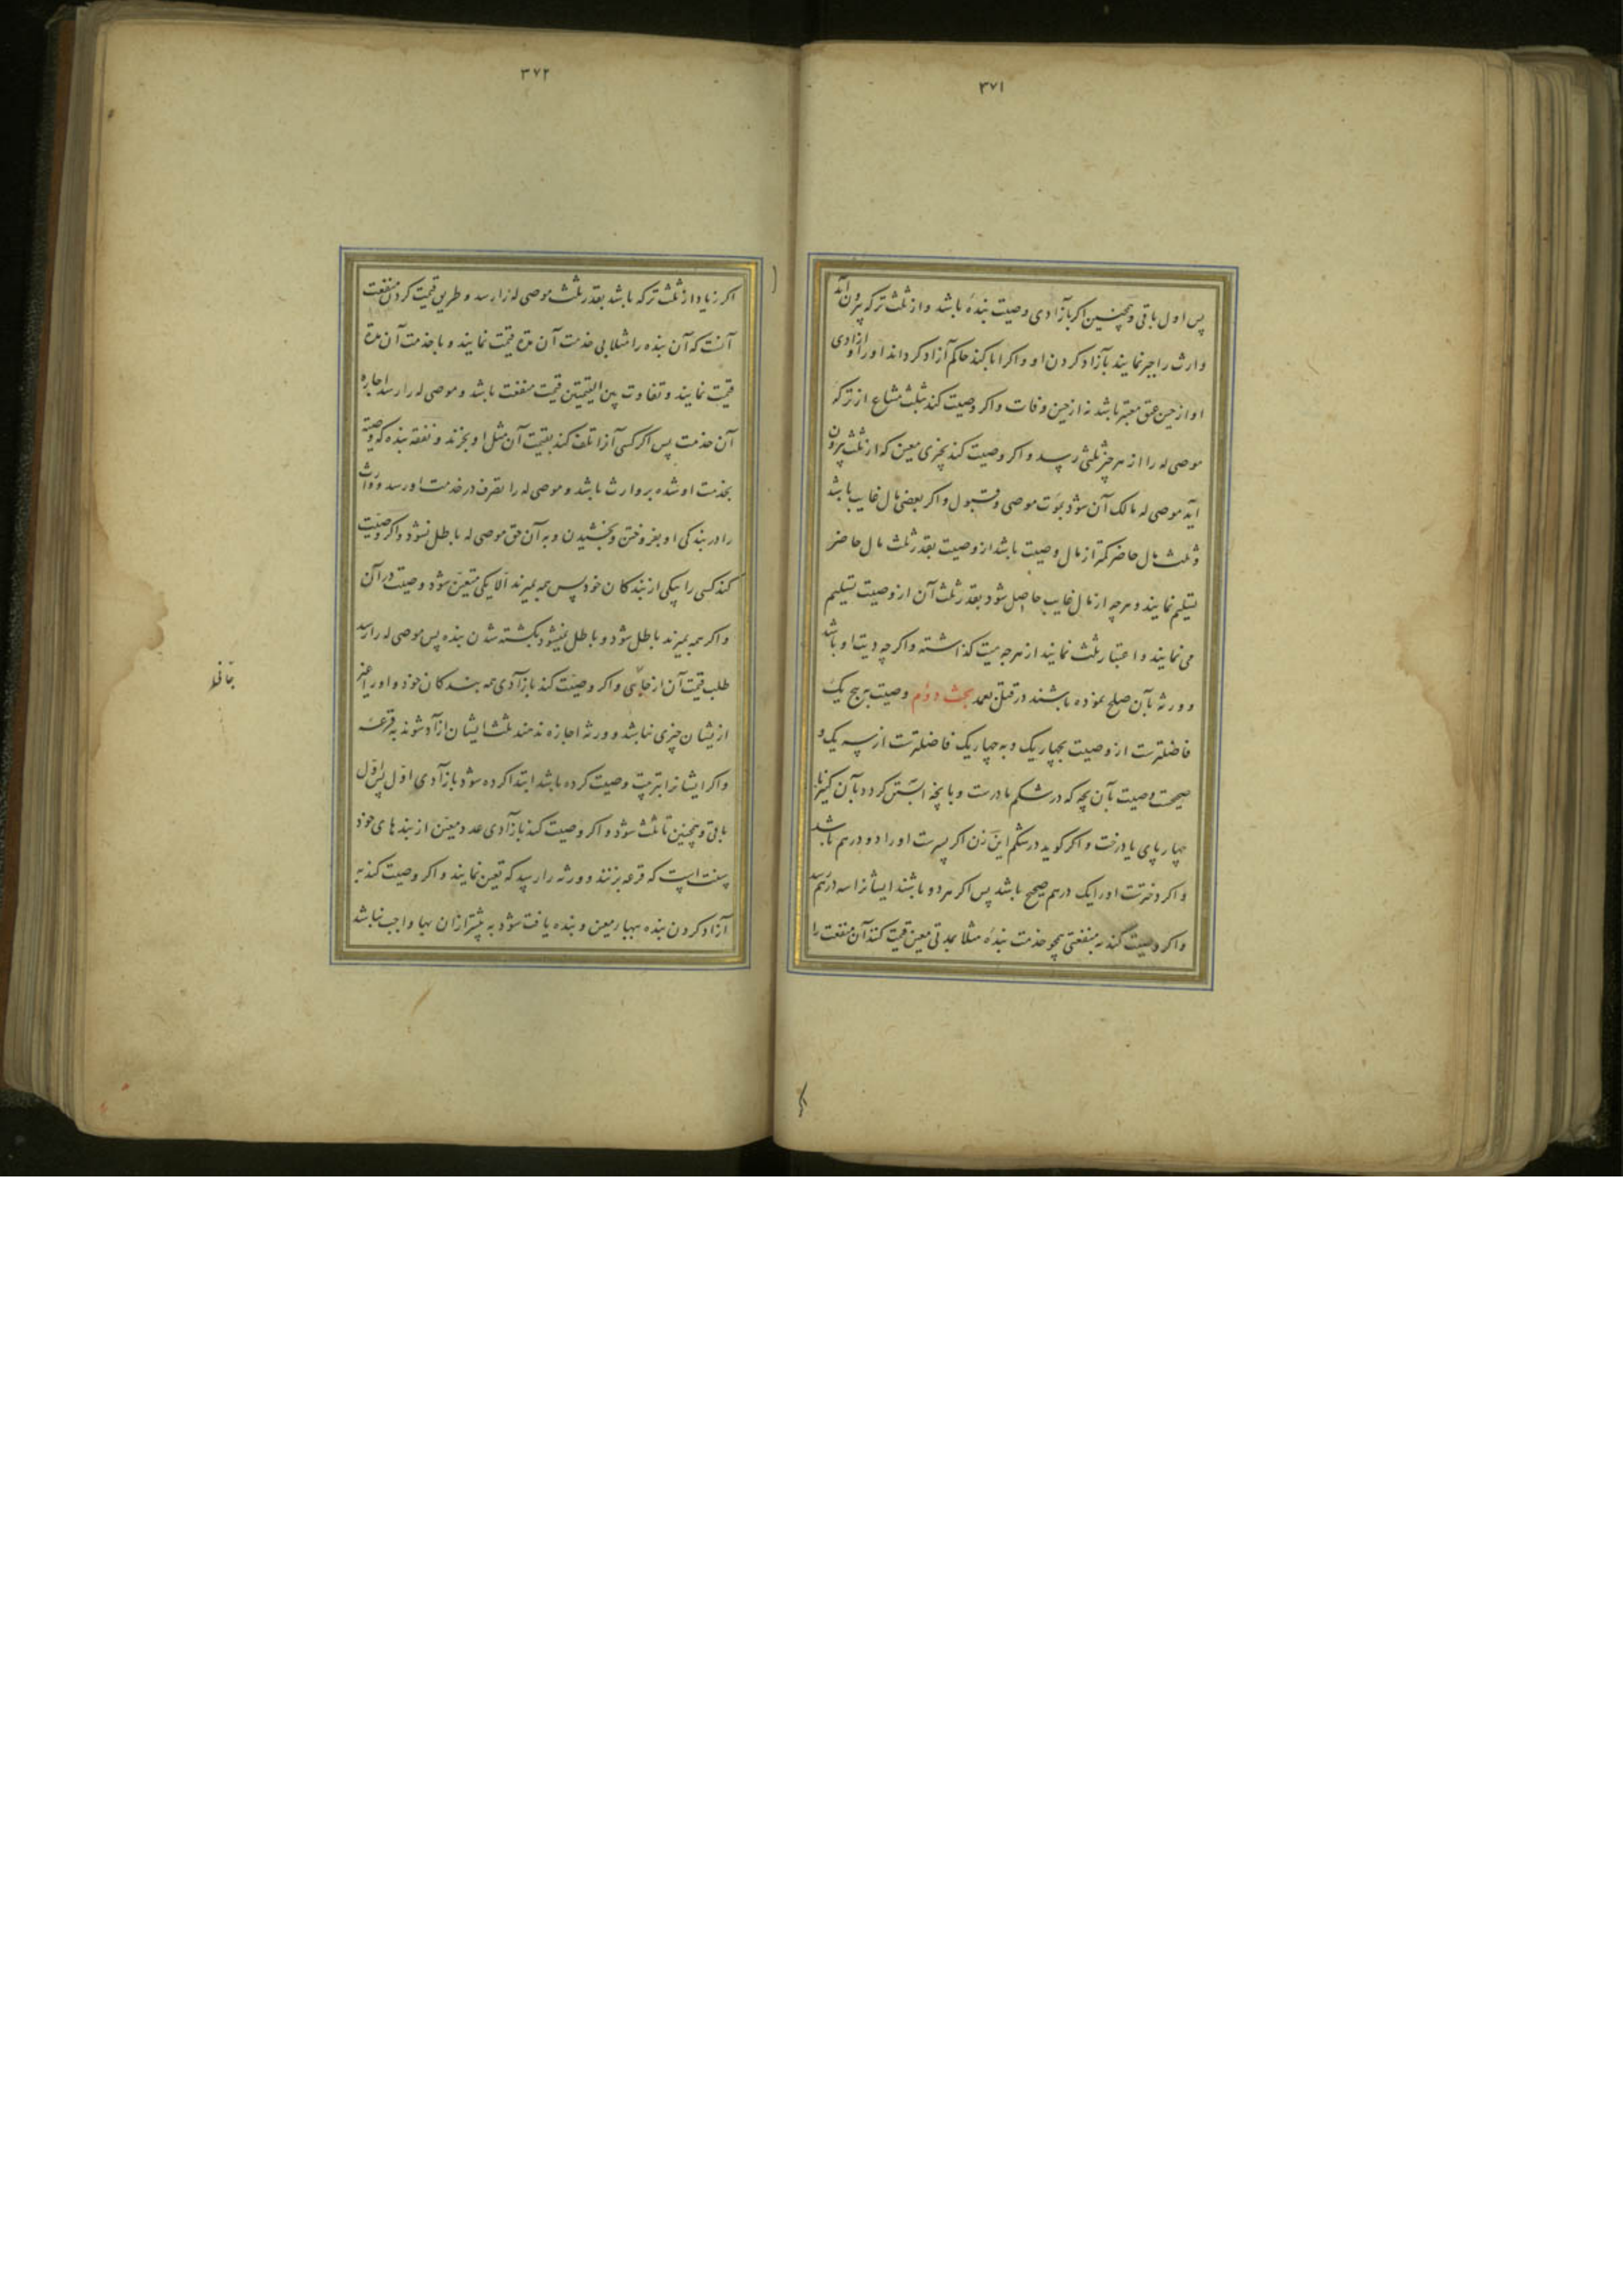 ۳۷۱
پس اول باقی و همچنین اکر بآزادی وصیت بنده باشد و از ثلث ترکه بیرون آید
وارث را جبر نمایند بآزاد کردن او و اکر ابا کند حاکم آزاد کرداند او را و آزادی
او از حین عتق معتبر باشد نه از حین وفات و اکر وصیت کند بثلث مشاع از ترکه
موصی له را از هر چیز ثلثی رسد و اکر وصیت کند بچیزی معین که از ثلث بیرون
آید موصی له مالک آن شود بموت موصی و قبول و اکر بعضی مال غایب باشد
و ثلث مال حاضر کمتر از مال وصیت باشد از وصیت بقدر ثلث مال حاضر
تسلیم نمایند و هرچه از مال غایب حاصل شود بقدر ثلث آن از وصیت تسلیم
می نمایند و اعتبار ثلث نمایند از هرچه میت کذاشته و اکر چه دیت او باشد
و ورثه بآن صلح نموده باشند در قتل عمد بحث دوم وصیت به پنج یک
فاضلترست از وصیت بچهار یک و به چهار یک فاضلترست از سه یک و
صحیحست وصیت بآن بچه که در شکم مادرست و بانچه آبستن کردد بآن کنیز یا
چهار پای یا درخت و اکر کوید در شکم این زن اکر پسرست او را دو درهم باشد
و اکر دخترست او را یک درهم صحیح باشد پس اکر هر دو باشند ایشانرا سه درهم رسد
و اکر وصیت کند به منفعتی همچو خدمت بنده مثلا بمدتی معین قیمت کنند آن منفعت را
۳۷۲
اکر زیاد از ثلث ترکه باشد بقدر ثلث موصی له را رسد و طریق قیمت کردن منفعت
آنست که آن بنده را مثلا بی خدمت آن مدة قیمت نمایند و با خدمت آن مدة
قیمت نمایند و تفاوت بین القیمتین قیمت منفعت باشد و موصی له را رسد اجاره
آن خدمت پس اکر کسی آنرا تلف کند بقیمت آن مثل او بخرند و نفقه بنده که وصیة
بخدمت او شده بر وارث باشد و موصی له را تصرف در خدمت او رسد و وارث
را در بندکی او بفروختن و بخشیدن و به آن حق موصی له باطل نشود و اکر وصیت
کند کسی را بیکی از بندکان خود پس همه بمیرند الا یکی متعین شود وصیت در آن
و اکر همه بمیرند باطل شود و باطل نمیشود بکشته شدن بنده پس موصی له را رسد
طلب قیمت آن از جانی و اکر وصیت کند بآزادی همه بندکان خود و او را غیر
از یشان چیزی نباشد و ورثه اجازه ندهند ثلث ایشان آزاد شوند به قرعه
و اکر ایشانرا بترتیب وصیت کرده باشد ابتدا کرده شود بآزادی اول پس اول
باقی و همچنین تا ثلث شود و اکر وصیت کند بآزادی عدد معین از بندهای خود
سنت است که قرعه بزنند و ورثه را رسد که تعیین نمایند و اکر وصیت کند به
آزاد کردن بنده ببها معین و بنده یافت شود به بیشتر از ان بها واجب نباشد